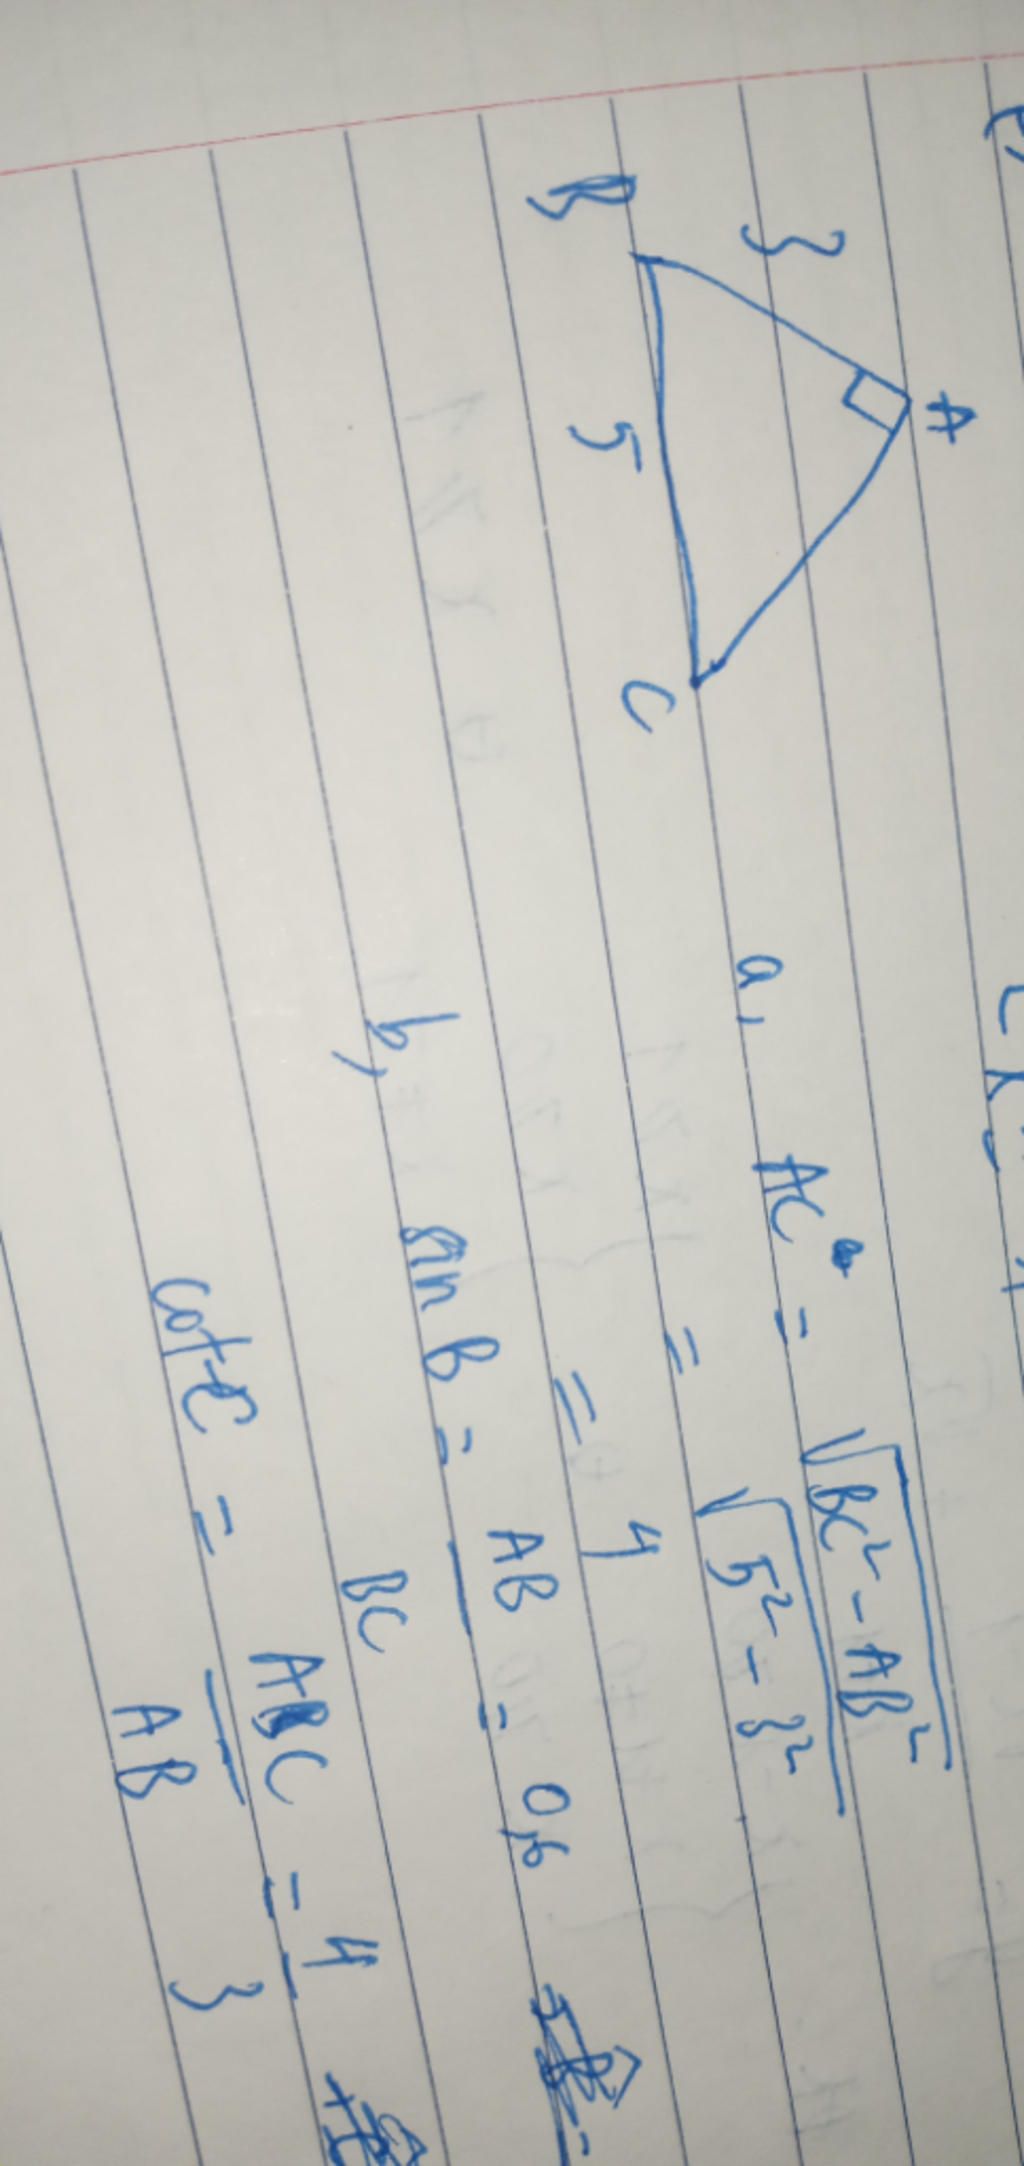 A
3
B
5
C
a, AC = √BC² - AB²
= √5² - 3²
= 4
b, sin B = AB = 0,6
BC
cot C = AC = 4
AB 3